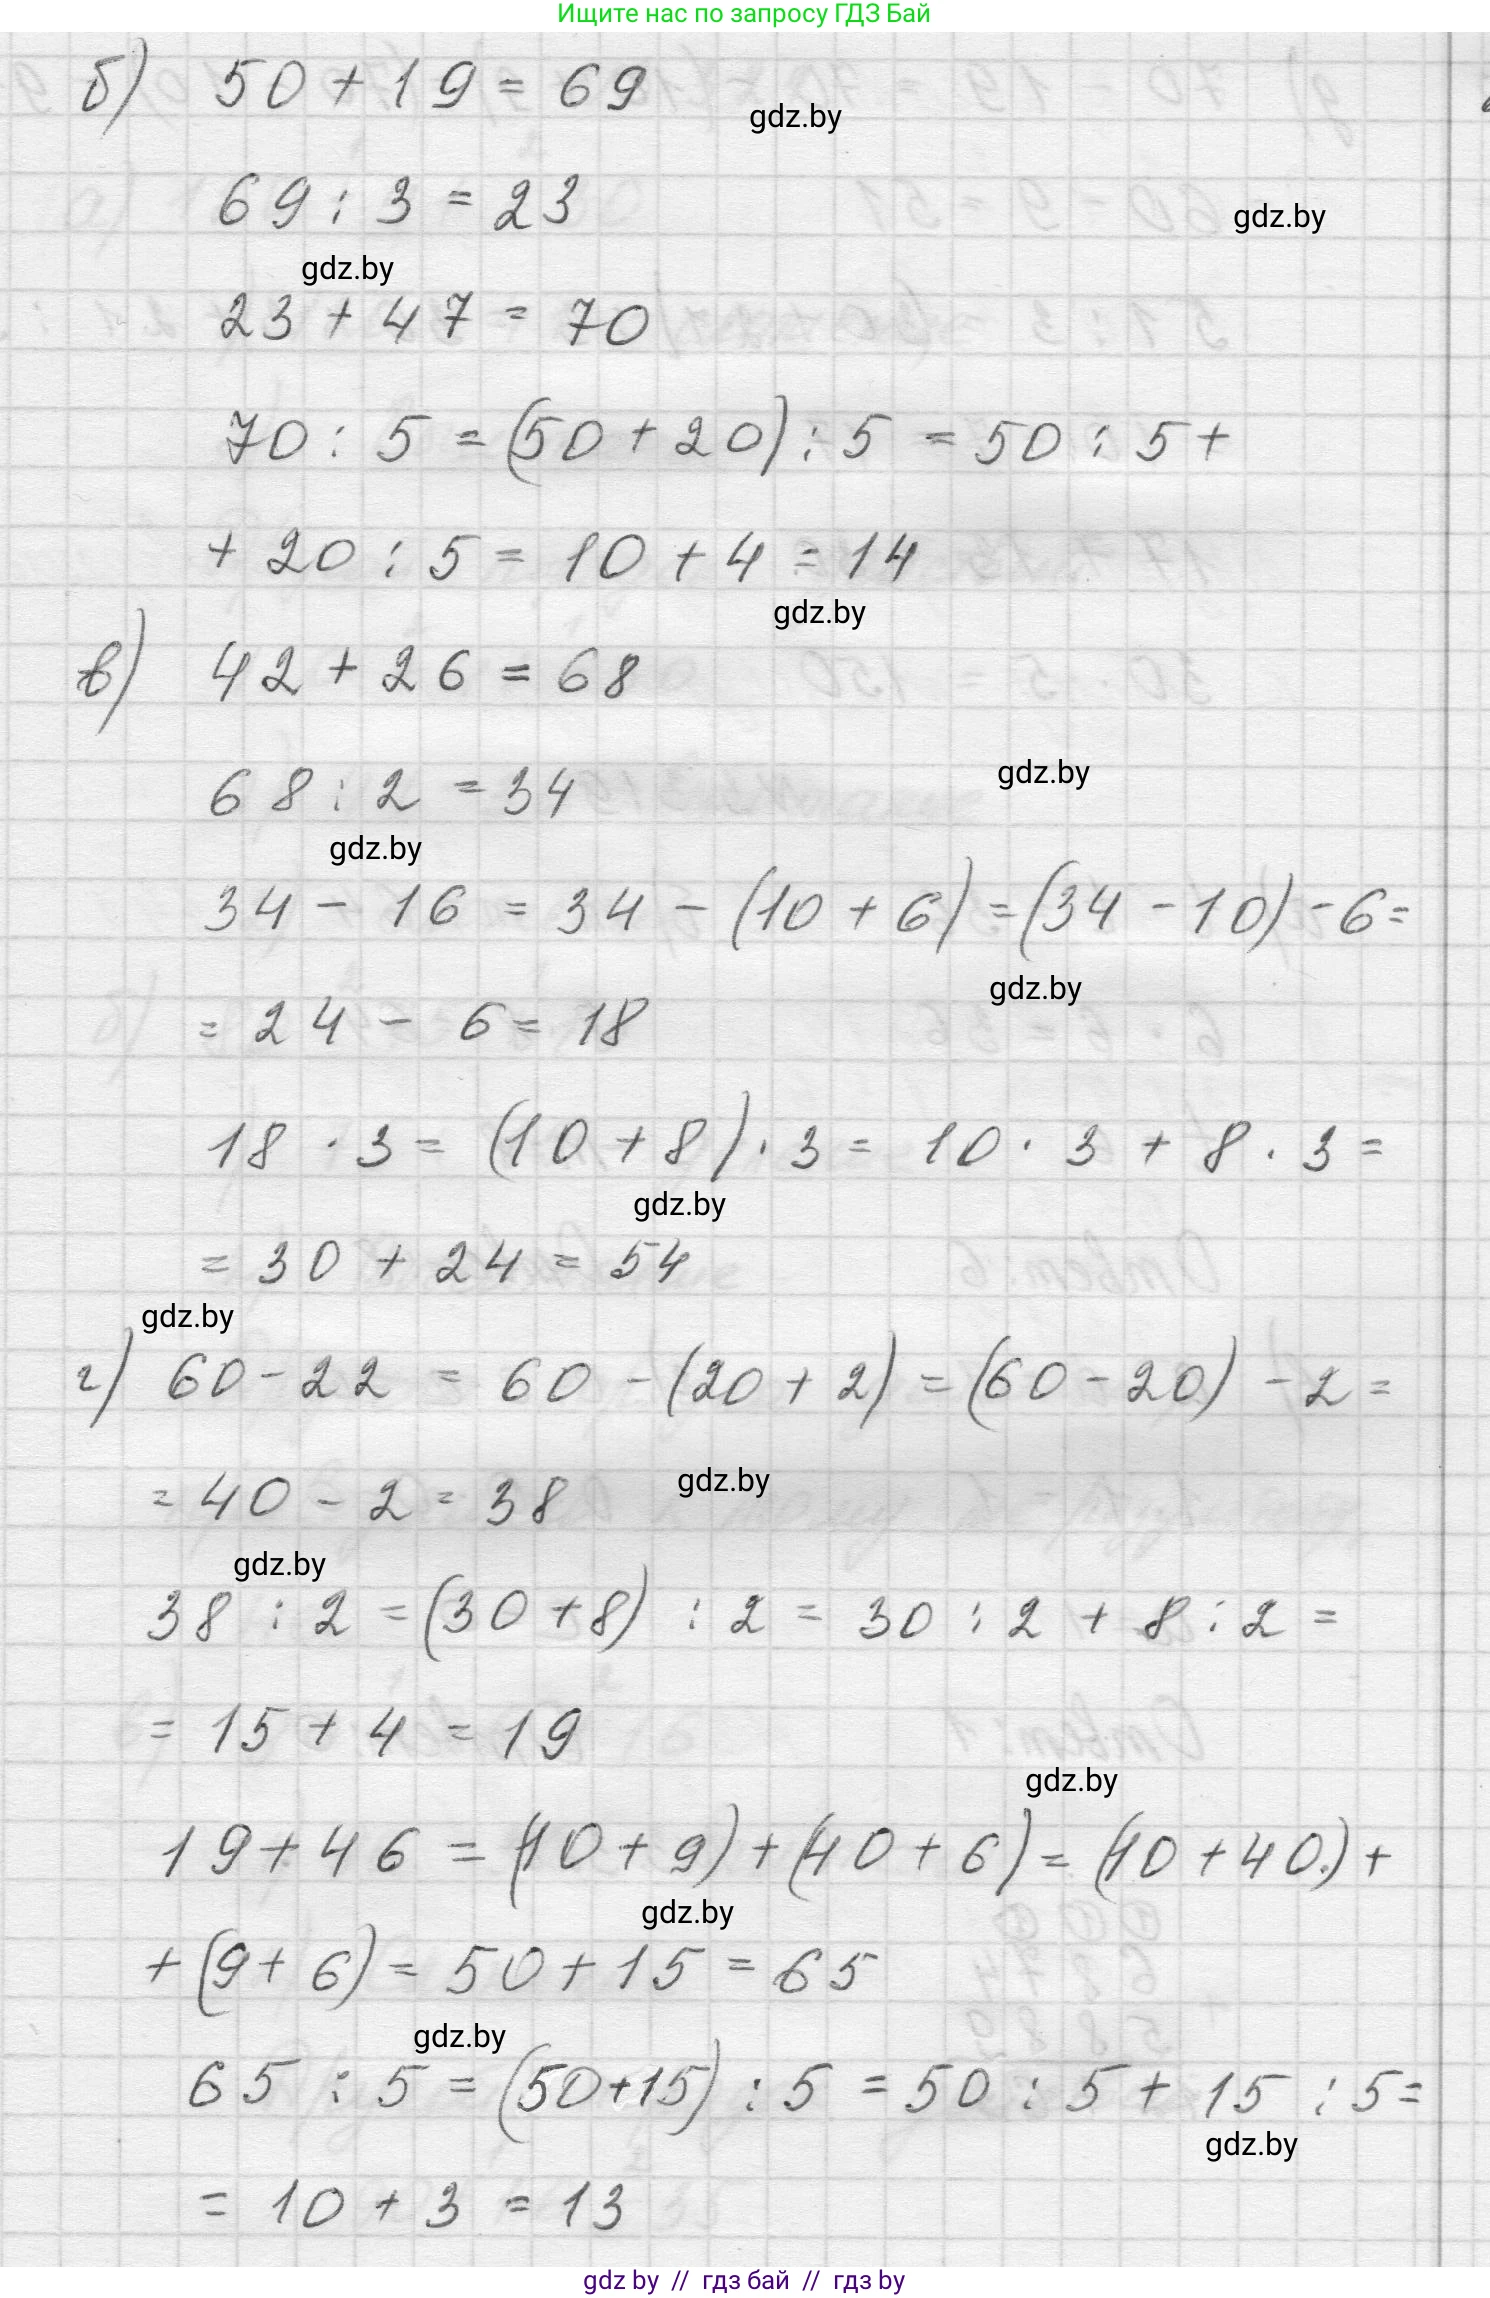 Ищите нас по запросу ГДЗ Бай
б) 50 + 19 = 69
gdz.by
69 : 3 = 23
gdz.by
gdz.by
23 + 47 = 70
70 : 5 = (50 + 20) : 5 = 50 : 5 +
+ 20 : 5 = 10 + 4 = 14
gdz.by
в) 42 + 26 = 68
gdz.by
68 : 2 = 34
gdz.by
34 - 16 = 34 - (10 + 6) = (34 - 10) - 6 =
gdz.by
= 24 - 6 = 18
18 · 3 = (10 + 8) · 3 = 10 · 3 + 8 · 3 =
gdz.by
= 30 + 24 = 54
gdz.by
г) 60 - 22 = 60 - (20 + 2) = (60 - 20) - 2 =
gdz.by
= 40 - 2 = 38
gdz.by
38 : 2 = (30 + 8) : 2 = 30 : 2 + 8 : 2 =
= 15 + 4 = 19
gdz.by
19 + 46 = (10 + 9) + (40 + 6) = (10 + 40) +
gdz.by
+ (9 + 6) = 50 + 15 = 65
gdz.by
65 : 5 = (50 + 15) : 5 = 50 : 5 + 15 : 5 =
gdz.by
= 10 + 3 = 13
gdz by // гдз бай // гдз by